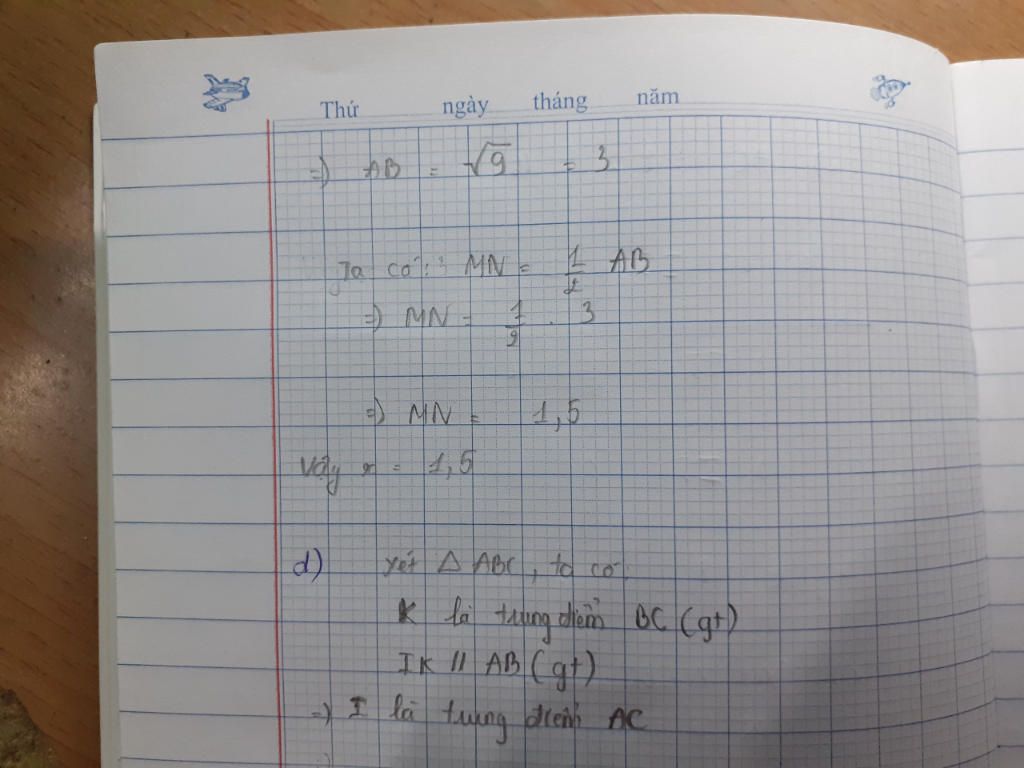 Thứ ngày tháng năm
=) AB = √9 = 3
Ta có : MN = 1/2 AB
=) MN = 1/2 . 3
=) MN = 1,5
Vậy x = 1,5
d) xét △ ABC, ta có:
K là trung điểm BC (gt)
IK // AB (gt)
=) I là trung điểm AC